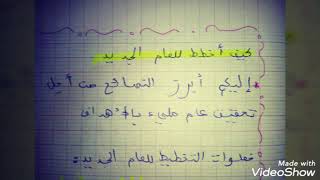 كيف أخطط للعام الجديد
إليكي أبرز النصائح من أجل
تحقيق عام مليء بالأهداف
خطوات التخطيط للعام الجديد:
Made with
VideoShow